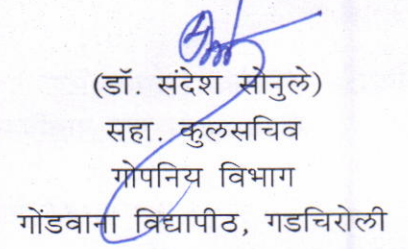 (डॉ. संदेश सोनुले)
सहा. कुलसचिव
गोपनिय विभाग
गोंडवाना विद्यापीठ, गडचिरोली